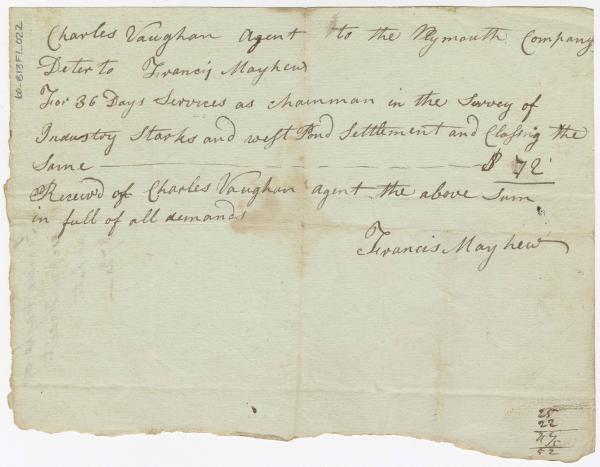 60-813F1.022
Charles Vaughan Agent to the Plymouth Company
Deter to Francis Mayhew
For 36 Days Services as chainman in the Survey of
Industry Starks and west Pond Settlement and Classing the
Same $ 72
Received of Charles Vaughan agent the above Sum
in full of all demands
Francis Mayhew
25
22
52